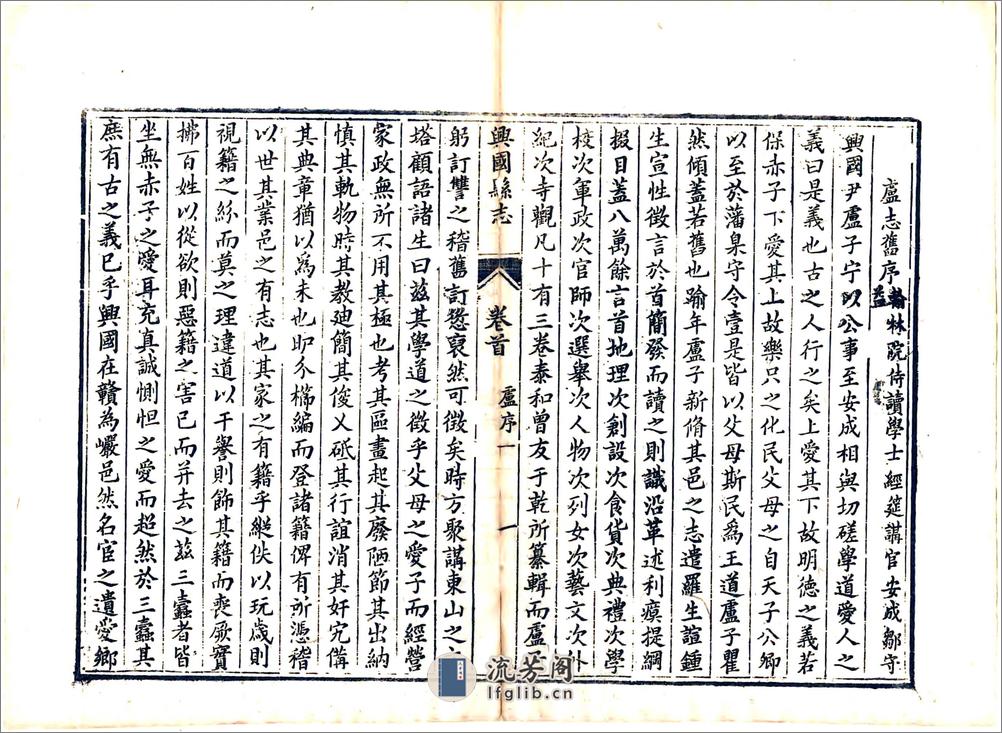 盧志舊序 翰林院侍讀學士經筵講官安成鄒守益
興國尹盧子宁以公事至安成相與切磋學道愛人之
義曰是義也古之人行之矣上愛其下故明德之義若
保赤子下愛其上故樂只之化民父母之自天子公卿
以至於藩臬守令壹是皆以父母斯民爲王道盧子瞿
然傾蓋若舊也踰年盧子新脩其邑之志遣羅生諠鍾
生宣性徵言於首簡發而讀之則識沿革述利瘼提綱
掇目蓋八萬餘言首地理次創設次食貨次典禮次學
校次軍政次官師次選舉次人物次列女次藝文次外
紀次寺觀凡十有三卷泰和曾友于乾所纂輯而盧
興國縣志 卷首 盧序一 一
躬訂讐之稽舊訂愆裒然可徵矣時方聚講東山之
塔顧語諸生曰茲其學道之徵乎父母之愛子而經營
家政無所不用其極也考其區畫起其廢陋節其出納
慎其軌物時其教廸簡其俊乂砥其行誼消其奸宄備
其典章猶以爲未也卽分櫛編而登諸籍俾有所憑稽
以世其業邑之有志也其家之有籍乎縱佚以玩歲則
視籍之紛而莫之理違道以干譽則飾其籍而喪厥實
拂百姓以從欲則惡籍之害已而并去之茲三蠹者皆
坐無赤子之愛耳充真誠惻怛之愛而超然於三蠹其
庶有古之義已乎興國在贛為巖邑然名宦之遺愛鄉
流芳阁
lfglib.cn